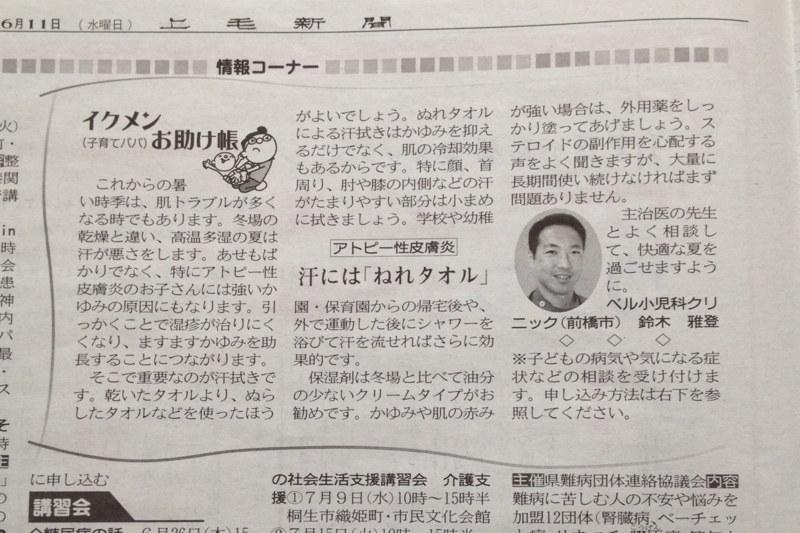 6月11日 (水曜日) 上毛新聞
情報コーナー
イクメン
(子育てパパ)お助け帳
これからの暑
い時季は、肌トラブルが多く
なる時でもあります。冬場の
乾燥と違い、高温多湿の夏は
汗が悪さをします。あせもば
かりでなく、特にアトピー性
皮膚炎のお子さんには強いか
ゆみの原因にもなります。引
っかくことで湿疹が治りにく
くなり、ますますかゆみを助
長することにつながります。
そこで重要なのが汗拭きで
す。乾いたタオルより、ぬら
したタオルなどを使ったほう
がよいでしょう。ぬれタオル
による汗拭きはかゆみを抑え
るだけでなく、肌の冷却効果
もあるからです。特に顔、首
周り、肘や膝の内側などの汗
がたまりやすい部分は小まめ
に拭きましょう。学校や幼稚
アトピー性皮膚炎
汗には「ねれタオル」
園・保育園からの帰宅後や、
外で運動した後にシャワーを
浴びて汗を流せればさらに効
果的です。
保湿剤は冬場と比べて油分
の少ないクリームタイプがお
勧めです。かゆみや肌の赤み
が強い場合は、外用薬をしっ
かり塗ってあげましょう。ス
テロイドの副作用を心配する
声をよく聞きますが、大量に
長期間使い続けなければまず
問題ありません。
主治医の先生
とよく相談し
て、快適な夏を
過ごせますよ
うに。
ベル小児科クリ
ニック(前橋市) 鈴木 雅登
◇ ◇ ◇
※子どもの病気や気になる症
状などの相談を受け付けま
す。申し込み方法は右下を参
照してください。
に申し込む
講習会
の社会生活支援講習会 介護支
援①7月9日(水)10時～15時半
桐生市織姫町・市民文化会館
主催県難病団体連絡協議会内容
難病に苦しむ人の不安や悩みを
加盟12団体(腎臓病、ベーチェッ